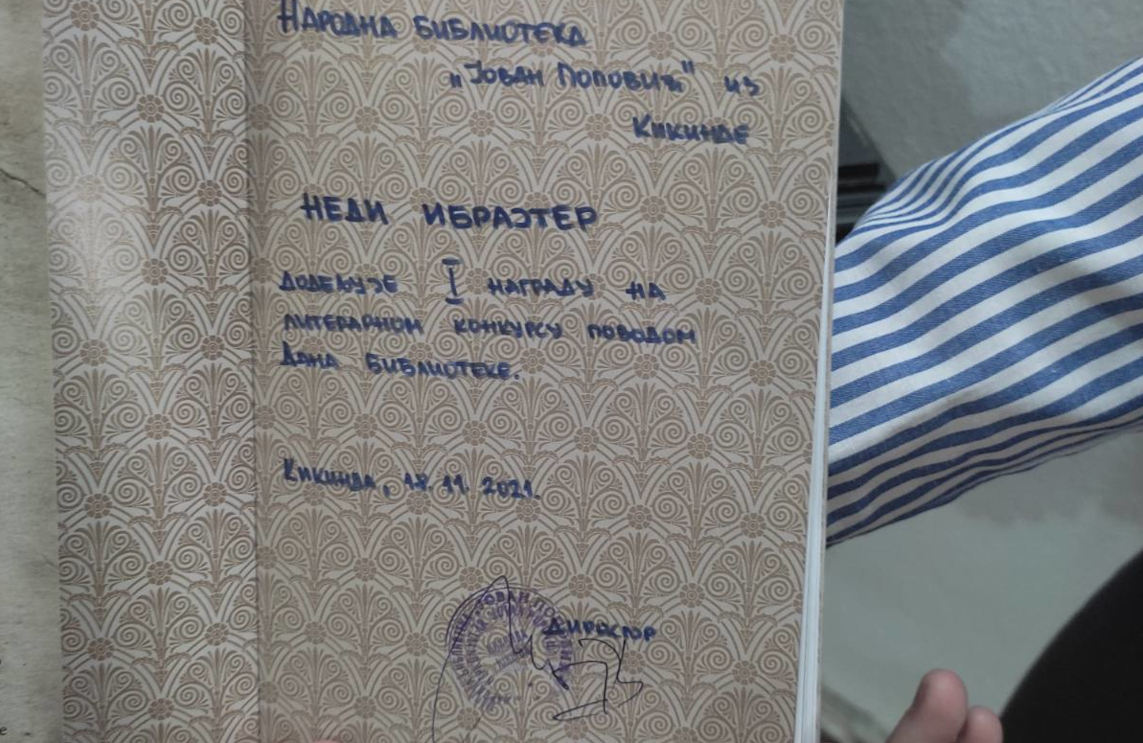 НАРОДНА БИБЛИОТЕКА
„ЈОВАН ПОПОВИЋ" ИЗ
КИКИНДЕ
НЕДИ ИБРАЈТЕР
ДОДЕЉУЈЕ I НАГРАДУ НА
ЛИТЕРАРНОМ КОНКУРСУ ПОВОДОМ
ДАНА БИБЛИОТЕКЕ.
КИКИНДА, 18.11.2021.
ДИРЕКТОР